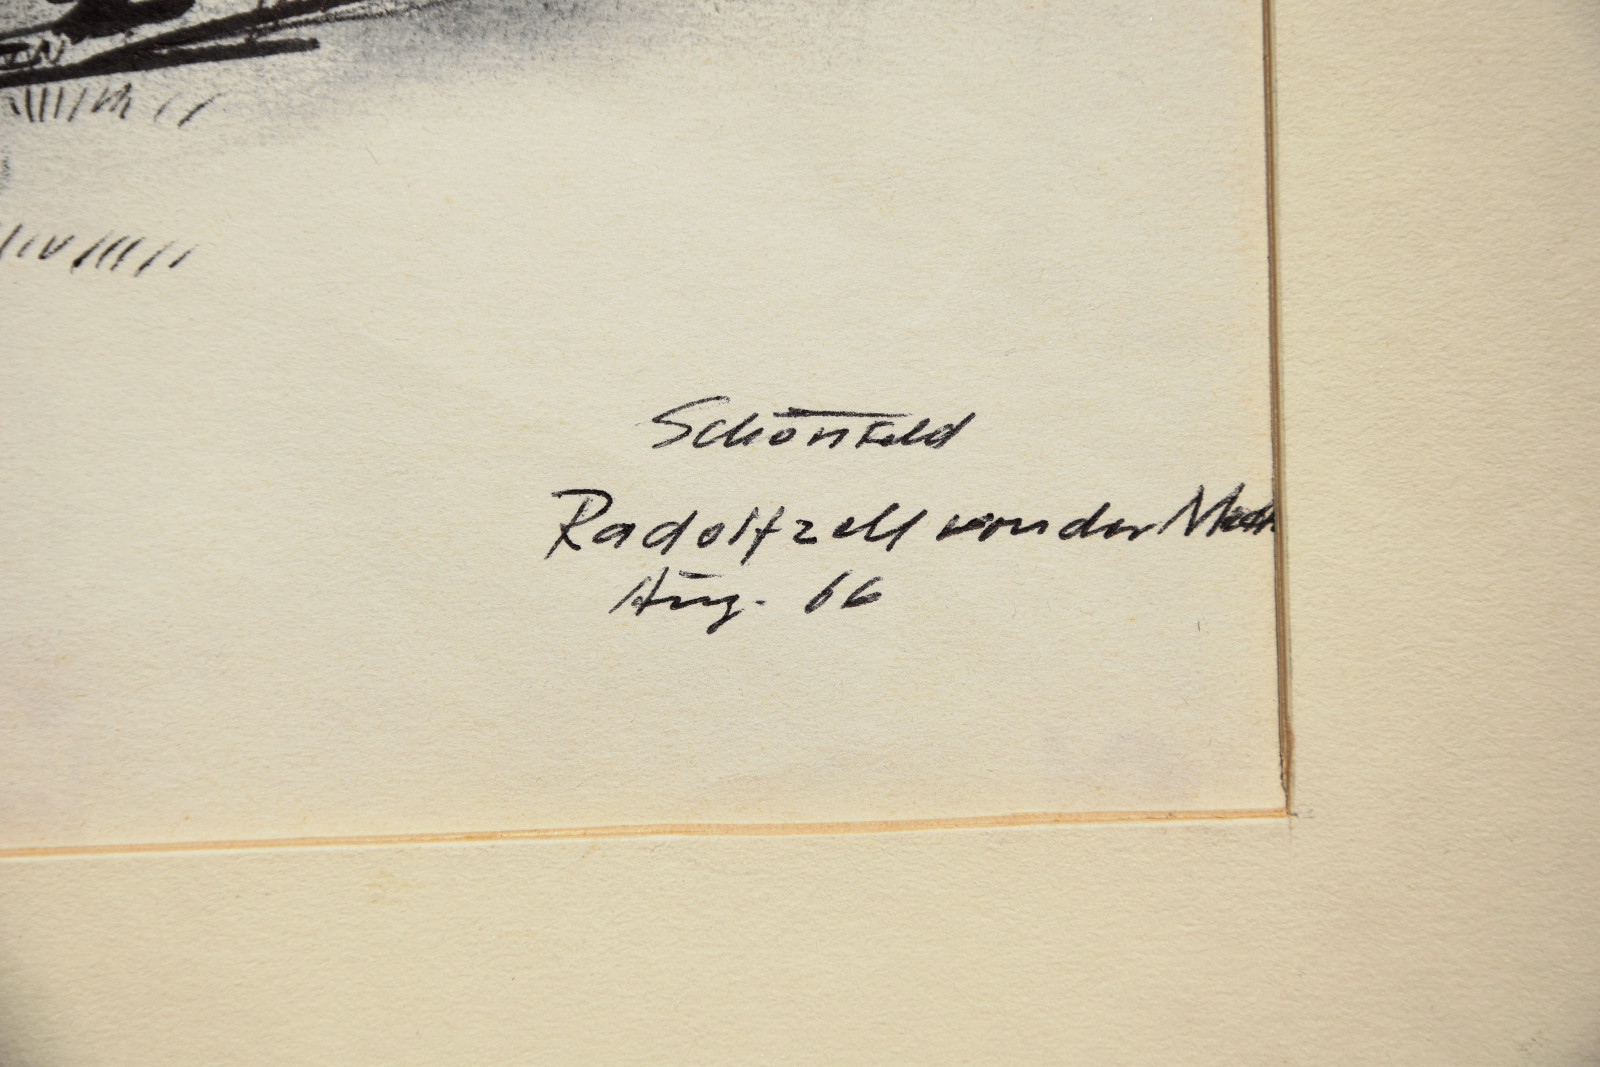 Schönfeld
Radolfzell von der
Aug. 66